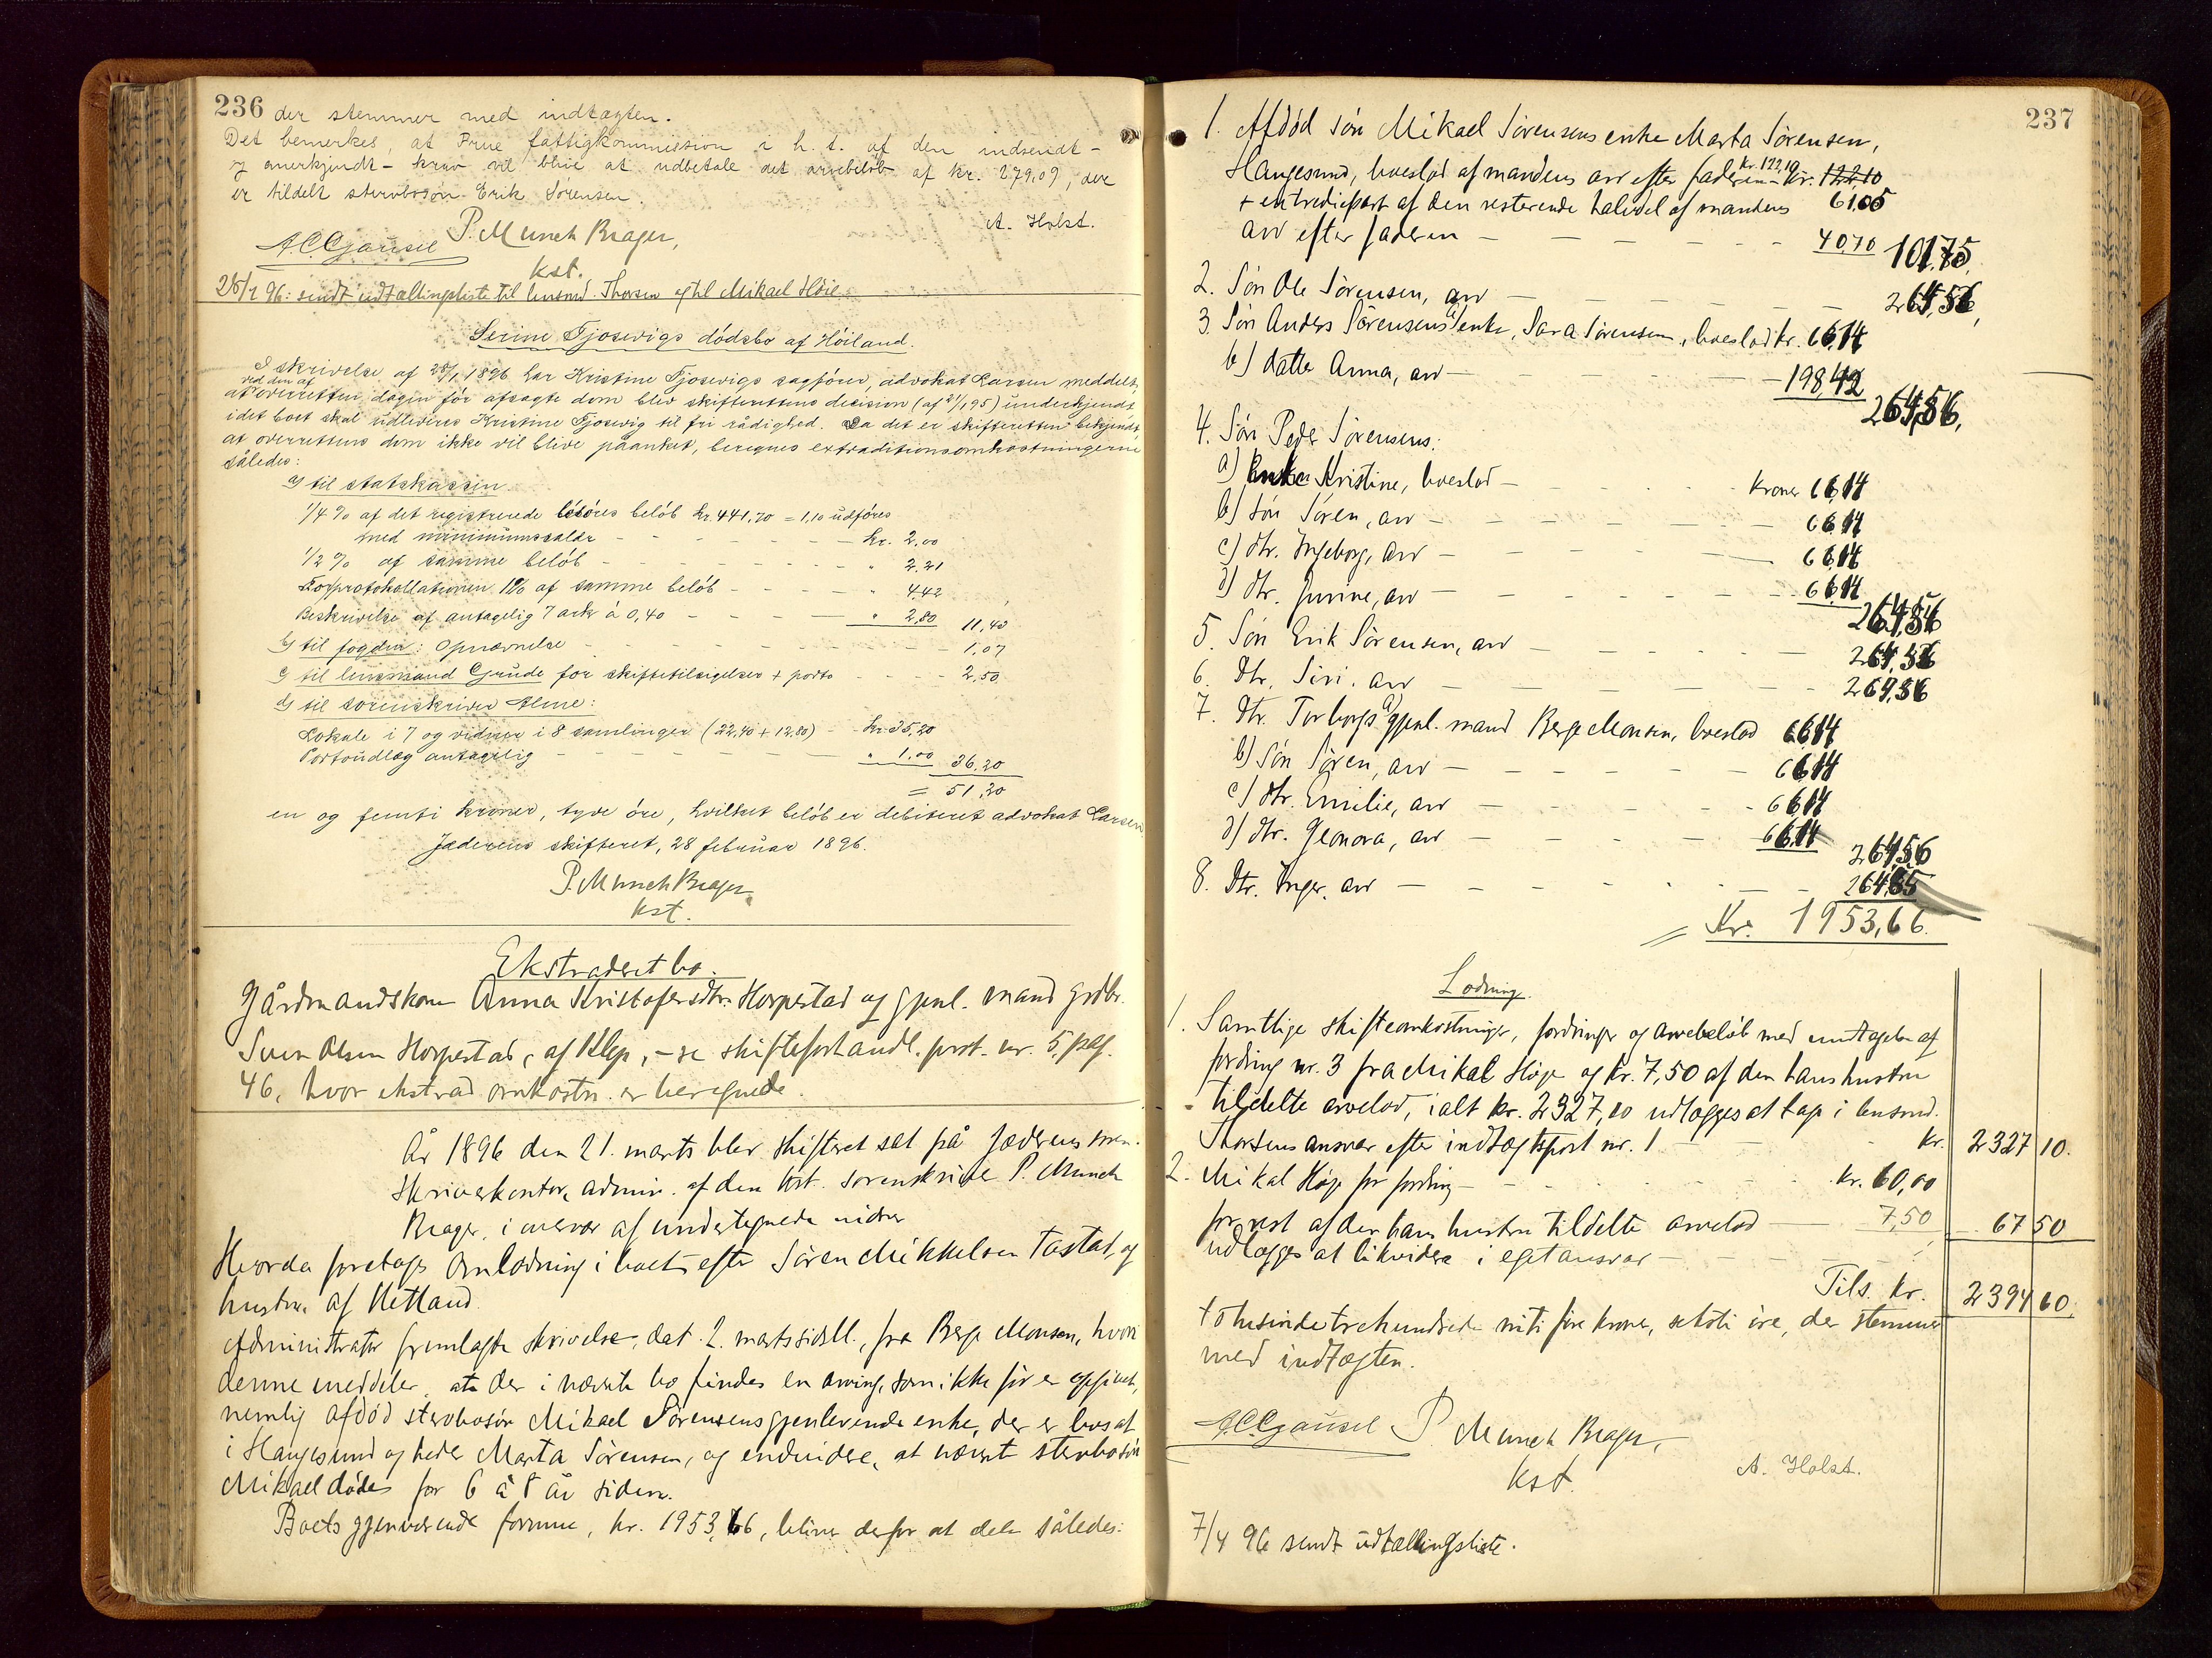 236 der stemmer med indtægten.
Det bemerkes, at Frue fattigkommission i h. t. af den indsendt -
og anerkjendt - krav vil blive at udbetale det arvebeløb af kr. 279,09, der
er tildelt stervbosøn Erik Sørensen.
A. Holst.
A.C.Gjausel P. Munch Brager,
kst.
26/2 96: sendt udtællingsliste til lensmd. Thorsen og til Mikael Høie.
Serine Tjosevigs dødsbo af Høiland.
I skrivelse af 28/1 1896 har Kristine Tjosevigs sagfører, advokat Larsen meddelt,
at ved den af overretten dagen før afsagte dom blev skifterettens decision (af 21/1 95) underkjendt
idet boet skal udleveres Kristine Tjosevig til fri rådighed. Da det er skifteretten bekjendt,
at overrettens dom ikke vil blive påanket, beregnes extraditionsomkostningerne
således:
a) til statskassen
1/4 % af det registrerede løsøres beløb kr. 441,70 = 1,10 udføres
med minimumssatsen - kr. 2,00
1/2 % af samme beløb - " 2,21
For protokollationen 1% af samme beløb - " 4,42
Beskrivelse af antagelig 7 ark à 0,40 - " 2,80 11,43
b) til fogden: Opnævnelse - 1,07
c) til lensmand Grude for skiftetilsigelser + porto - 2,50
d) til sorenskriver Alme:
Lokale i 7 og vidner i 8 samlinger (22,40 + 12,80) - kr. 35,20
Portoudlæg antagelig - " 1,00 36,20
= 51,20
en og femti kroner, tyve øre, hvilket beløb er debiteret advokat Larsen
Jæderens skifteret, 28 februar 1896.
P. Munch Brager
kst.
Ekstraderet bo.
Gårdmandskone Anna Kristofersdtr. Horpestad og gjenl. mand grdbr.
Sven Olsen Horpestad, af Klep, - se skifteforhandl. prot. nr. 5, pag.
46, hvor ekstrad. omkostn. er beregnede.
År 1896 den 21. marts blev skifteret sat på Jæderens soren-
skriverkontor, admin. af den kst. sorenskriver P. Munch
Brager, i overvær af undertegnede vidner
Hvorda foretoges omlodning i boet efter Søren Mikkelsen Tastad og
hustru af Hetland.
Administrator fremlagde skrivelse, dat. 2. marts sidstl., fra Berge Monsen, hvori
denne meddeler, at der i nævnte bo findes en arving, som ikke før er opgivet,
nemlig afdød stervbosøn Mikael Sørensens gjenlevende enke, der er bosat
i Haugesund og heder Marta Sørensen, og endvidere, at nævnt stervbosøn
Mikael døde for 6 à 8 år siden.
Boets gjenværende formue, kr. 1953,66, bliver derfor at dele således:
237
1. Afdød søn Mikael Sørensens enke Marta Sørensen,
Haugesund, boeslod af mandens arv efter faderen kr. 122,10 - kr. 122,10 61,05
+ en trediepart af den resterende halvdel af mandens
arv efter faderen - 40,70 101,75
2. Søn Ole Sørensen, arv - 264,56,
3. Søn Anders Sørensens a) enke, Sara Sørensen, boeslod kr. 66,14
b) datter Anna, arv - 198,42
264,56,
4. Søn Peder Sørensens:
a) Enke Kristine, boeslod - kroner 66,14
b) søn Søren, arv - 66,14
c) dtr. Ingeborg, arv - 66,14
d) dtr. Jurine, arv - 66,14
264,56
5. Søn Erik Sørensen, arv - 264,56
6. Dtr. Siri, arv - 264,56
7. Dtr. Torborgs a) gjenl. mand Berge Monsen, boeslod 66,14
b) søn Søren, arv - 66,14
c) dtr. Emilie, arv - 66,14
d) dtr. Geonora, arv - 66,14
264,56
8. Dtr. Inger, arv - 264,55
= Kr. 1953,66.
Lodning.
1. Samtlige skifteomkostninger, fordringer og arvebeløb med undtagelse af
fordring nr. 3 fra Mikal Høje og kr. 7,50 af den hans hustru
tildelte arvelod, ialt kr. 2327,10 udlægges at tage i lensmd.
Thorsens ansvar efter indtægtspost nr. 1 - kr. 2327 10.
2. Mikal Høje for fordring - kr. 60,00
for rest af den hans hustru tildelte arvelod - 7,50 67 50
udlægges at likvidere i eget ansvar -
Tils. kr. 2394 60.
to tusinde trehundrede niti fire kroner, seksti øre, der stemmer
med indtægten.
A.C.Gjausel P. Munch Brager,
kst.
A. Holst.
7/4 96 sendt udtællingsliste.